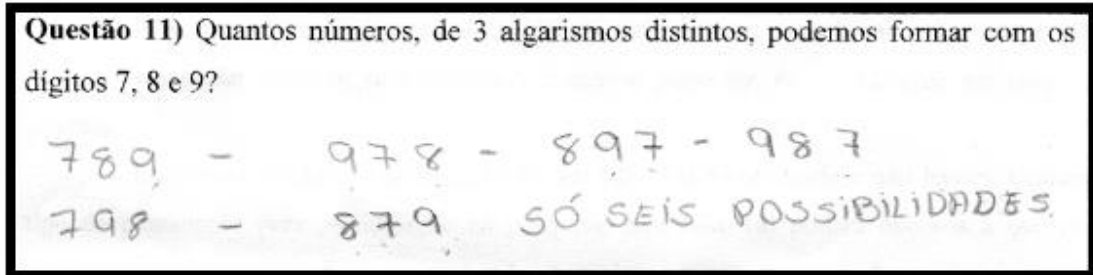 Questão 11) Quantos números, de 3 algarismos distintos, podemos formar com os
dígitos 7, 8 e 9?
789 - 978 - 897 - 987
798 - 879 SÓ SEIS POSSIBILIDADES.